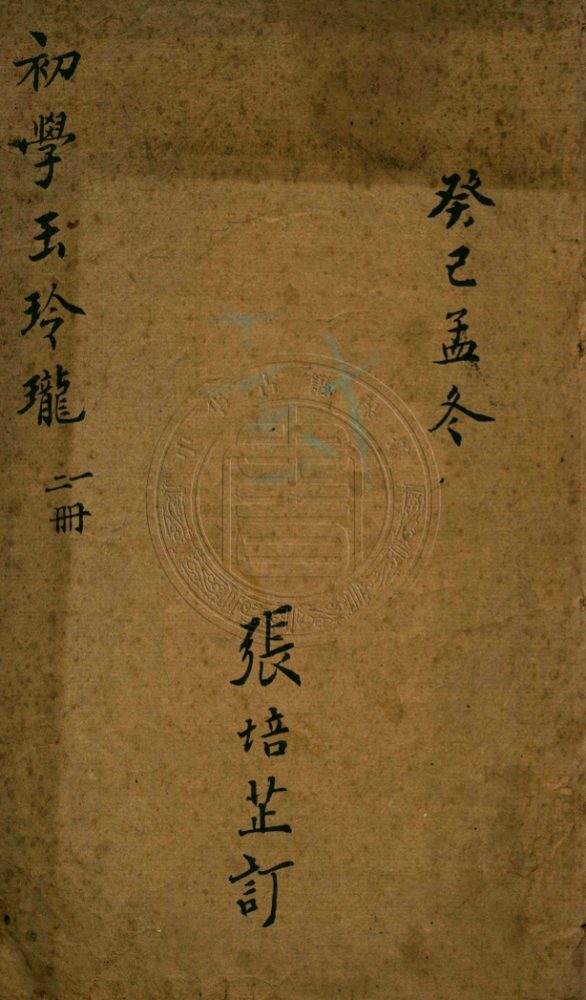 癸已孟冬
張培芷訂
初學玉玲瓏
冊